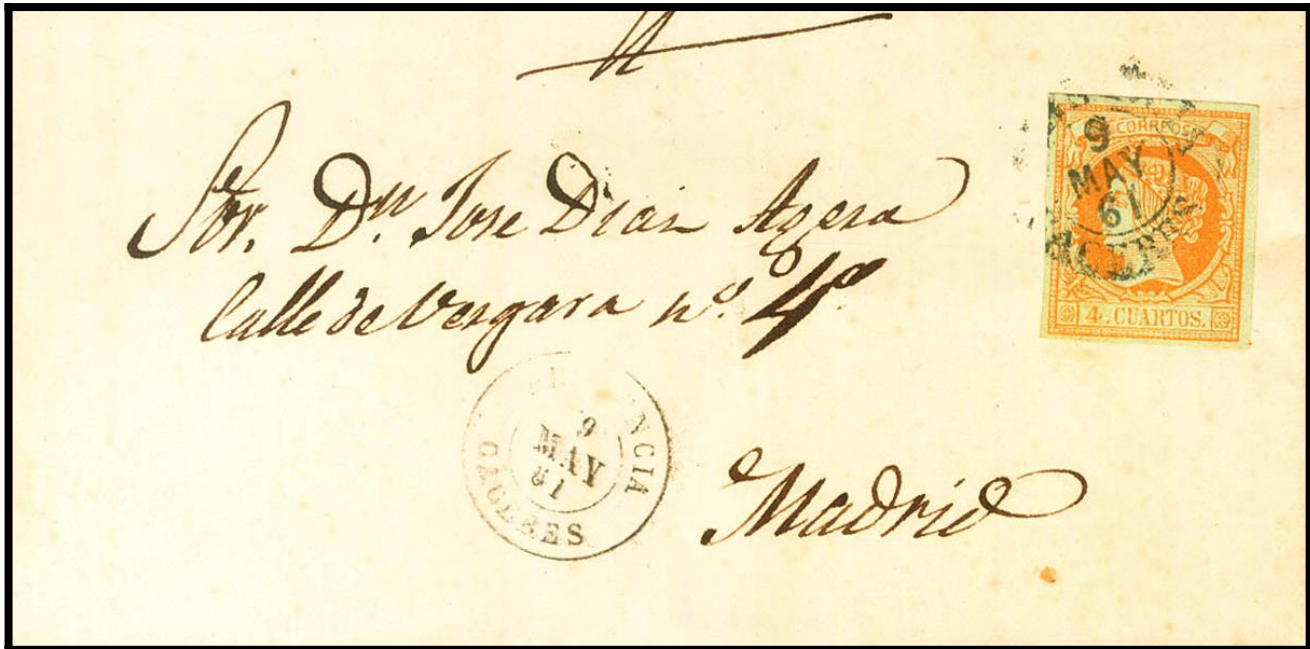 Sor. Dn. Jose Diaz Agera
Calle de Vergara nº. 4º
Madrid
CORREOS
9
MAY
61
CACERES
4. CUARTOS.
9
MAY
61
CACERES